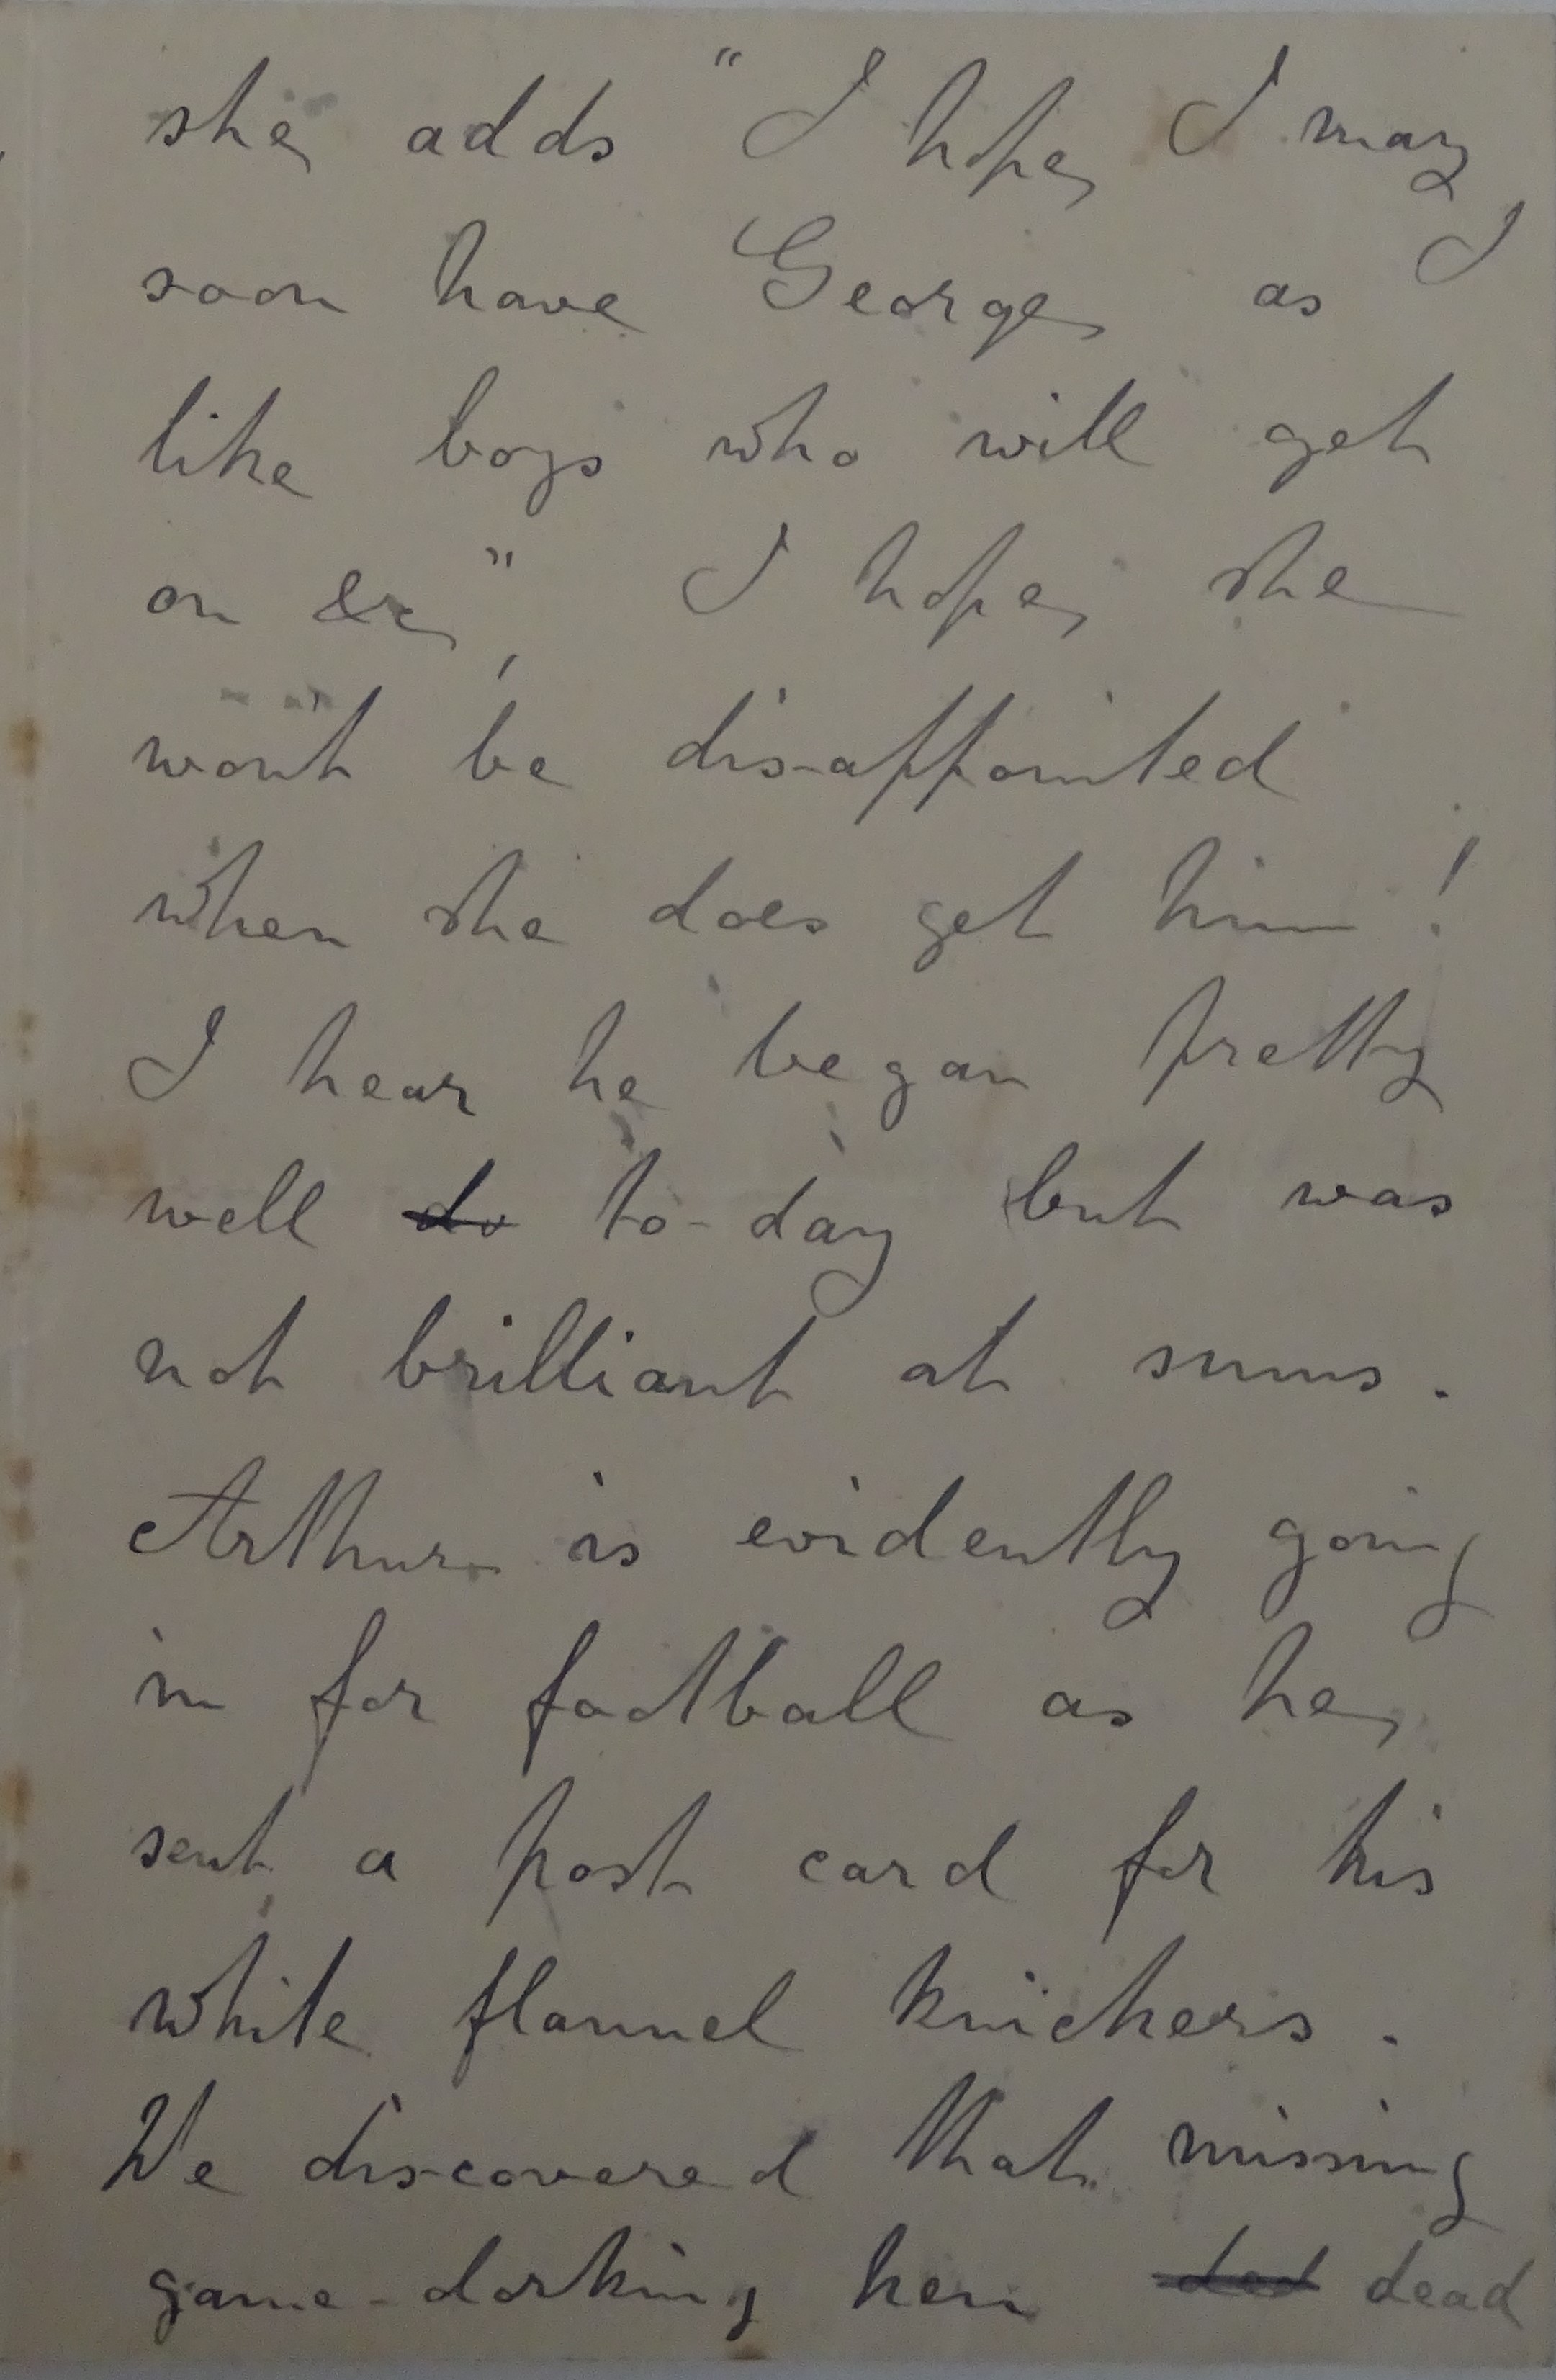 she adds "I hope I may
soon have George as I
like boys who will get
on &c," I hope she
won't be disappointed
when she does get him!
I hear he began pretty
well do to-day but was
not brilliant at sums.
Arthur is evidently going
in for football as he
sent a post card for his
white flannel knickers.
We discovered that missing
game-dorking hen ded dead